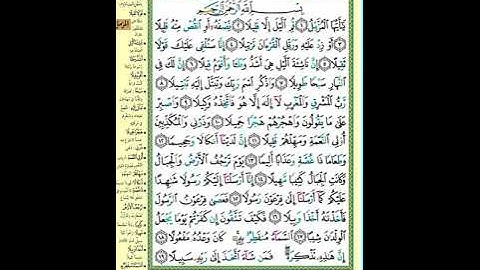 بِسْمِ ٱللَّهِ ٱلرَّحْمَٰنِ ٱلرَّحِيمِ
يَٰٓأَيُّهَا ٱلْمُزَّمِّلُ ١ قُمِ ٱلَّيْلَ إِلَّا قَلِيلًا ٢ نِّصْفَهُۥٓ أَوِ ٱنقُصْ مِنْهُ قَلِيلًا
٣ أَوْ زِدْ عَلَيْهِ وَرَتِّلِ ٱلْقُرْءَانَ تَرْتِيلًا ٤ إِنَّا سَنُلْقِى عَلَيْكَ قَوْلًا
ثَقِيلًا ٥ إِنَّ نَاشِئَةَ ٱلَّيْلِ هِىَ أَشَدُّ وَطْـًٔا وَأَقْوَمُ قِيلًا ٦ إِنَّ لَكَ فِى
ٱلنَّهَارِ سَبْحًا طَوِيلًا ٧ وَٱذْكُرِ ٱسْمَ رَبِّكَ وَتَبَتَّلْ إِلَيْهِ تَبْتِيلًا ٨
رَّبُّ ٱلْمَشْرِقِ وَٱلْمَغْرِبِ لَآ إِلَٰهَ إِلَّا هُوَ فَٱتَّخِذْهُ وَكِيلًا ٩ وَٱصْبِرْ
عَلَىٰ مَا يَقُولُونَ وَٱهْجُرْهُمْ هَجْرًا جَمِيلًا ١٠ وَذَرْنِى وَٱلْمُكَذِّبِينَ
أُو۟لِى ٱلنَّعْمَةِ وَمَهِّلْهُمْ قَلِيلًا ١١ إِنَّ لَدَيْنَآ أَنكَالًا وَجَحِيمًا ١٢
وَطَعَامًا ذَا غُصَّةٍ وَعَذَابًا أَلِيمًا ١٣ يَوْمَ تَرْجُفُ ٱلْأَرْضُ وَٱلْجِبَالُ
وَكَانَتِ ٱلْجِبَالُ كَثِيبًا مَّهِيلًا ١٤ إِنَّآ أَرْسَلْنَآ إِلَيْكُمْ رَسُولًا شَٰهِدًا
عَلَيْكُمْ كَمَآ أَرْسَلْنَآ إِلَىٰ فِرْعَوْنَ رَسُولًا ١٥ فَعَصَىٰ فِرْعَوْنُ ٱلرَّسُولَ
فَأَخَذْنَٰهُ أَخْذًا وَبِيلًا ١٦ فَكَيْفَ تَتَّقُونَ إِن كَفَرْتُمْ يَوْمًا يَجْعَلُ
ٱلْوِلْدَٰنَ شِيبًا ١٧ ٱلسَّمَآءُ مُنفَطِرٌۢ بِهِۦ كَانَ وَعْدُهُۥ مَفْعُولًا ١٨
إِنَّ هَٰذِهِۦ تَذْكِرَةٌ فَمَن شَآءَ ٱتَّخَذَ إِلَىٰ رَبِّهِۦ سَبِيلًا ١٩